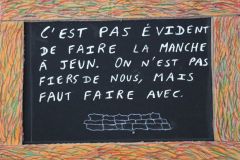 C'EST PAS ÉVIDENT
DE FAIRE LA MANCHE
À JEUN. ON N'EST PAS
FIERS DE NOUS, MAIS
FAUT FAIRE AVEC.